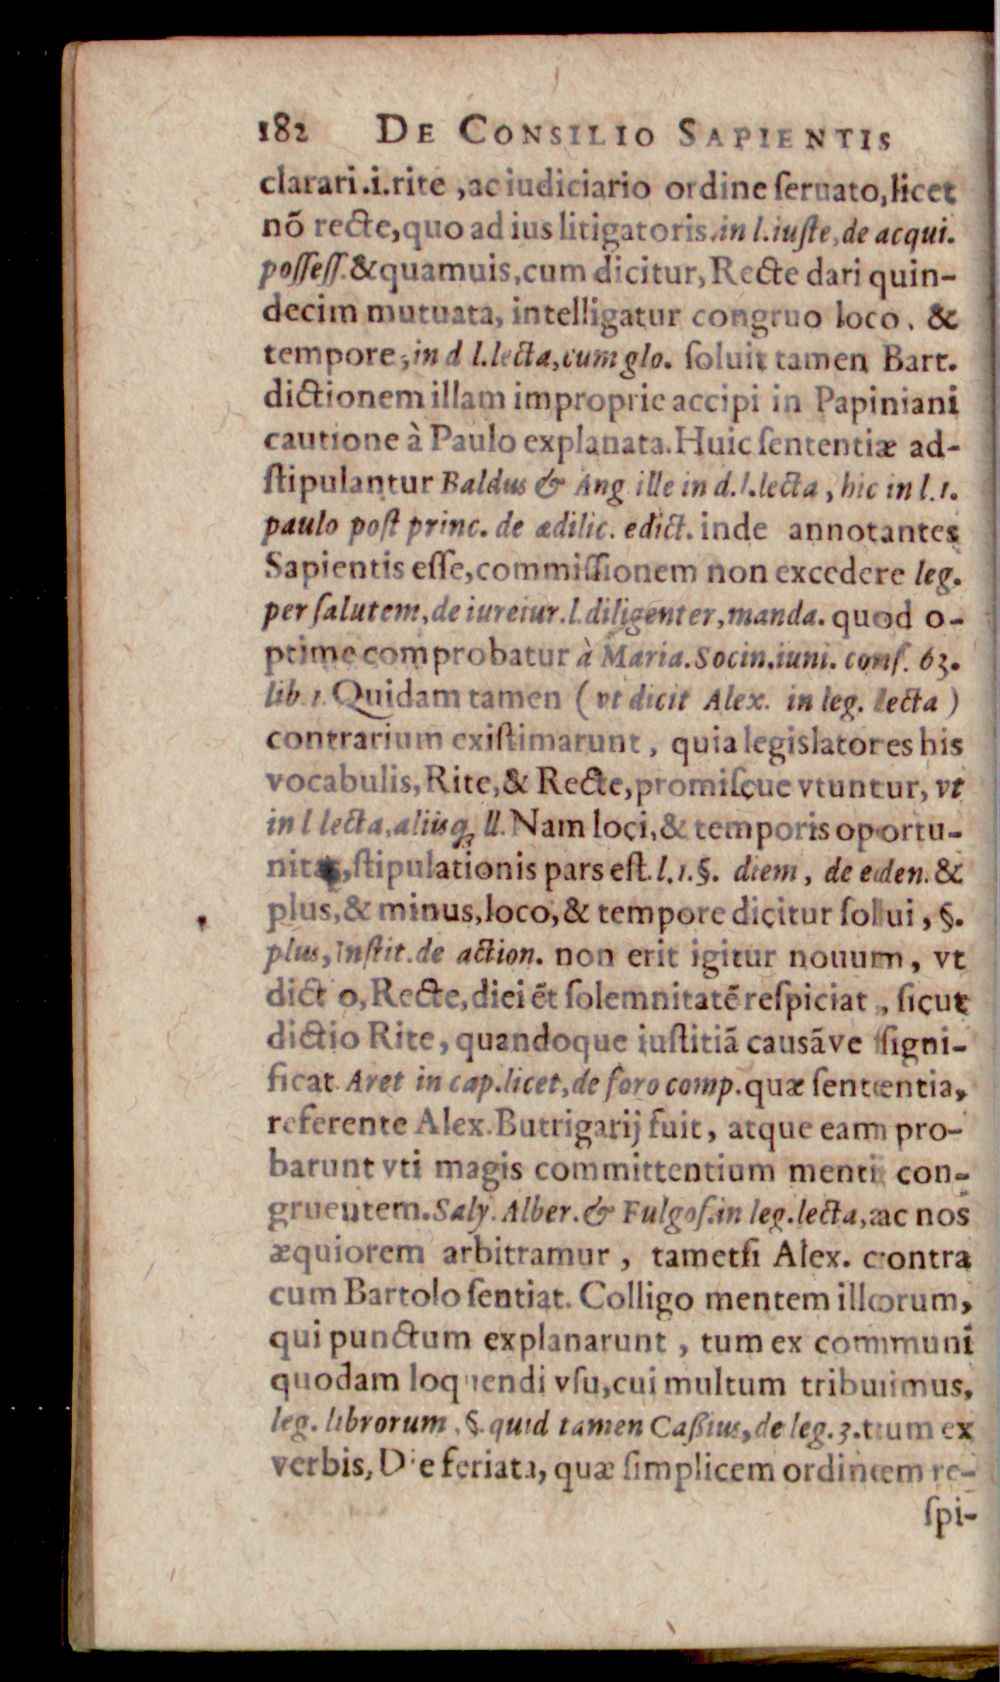 182 DE CONSILIO SAPIENTIS
clarari .i. rite , ac iudiciario ordine ſeruato, licet
nõ recte, quo ad ius litigatoris. in l. iuſte, de acqui.
poſſeſſ. & quamuis, cum dicitur, Recte dari quin-
decim mutuata, intelligatur congruo loco. &
tempore, in d l. lecta, cum glo. ſoluit tamen Bart.
dictionem illam improprie accipi in Papiniani
cautione à Paulo explanata. Huic ſententiæ ad-
ſtipulantur Baldus & Ang ille in d. l. lecta , hic in l. 1.
paulo poſt princ. de ædilic. edict. inde annotantes
Sapientis eſſe, commiſſionem non excedere leg.
per ſalutem, de iureiur. l. diligenter, manda. quod o-
ptime comprobatur à Maria. Socin. iuni. conſ. 63.
lib 1. Quidam tamen ( vt dicit Alex. in leg. lecta )
contrarium exiſtimarunt , quia legislatores his
vocabulis, Rite, & Recte, promiſcue vtuntur, vt
in l lecta, aliisq; ll. Nam loci, & temporis oportu-
nitas, ſtipulationis pars eſt. l. 1. §. diem , de eden. &
plus, & minus, loco, & tempore dicitur ſolui , §.
plus, Inſtit. de action. non erit igitur nouum, vt
dictio, Recte, diei ẽt ſolemnitatẽ reſpiciat , ſicut
dictio Rite, quandoque iuſtitiã causãve ſigni-
ficat. Aret in cap. licet, de foro comp. quæ ſententia,
referente Alex. Butrigarij fuit, atque eam pro-
barunt vti magis committentium menti con-
gruentem. Saly. Alber. & Fulgoſ. in leg. lecta, ac nos
æquiorem arbitramur , tametſi Alex. contra
cum Bartolo ſentiat. Colligo mentem illorum,
qui punctum explanarunt , tum ex communi
quodam loquendi vſu, cui multum tribuimus,
leg. librorum , §. quid tamen Caßius, de leg. 3. tum ex
verbis, Die feriata, quæ ſimplicem ordinem re-
ſpi-